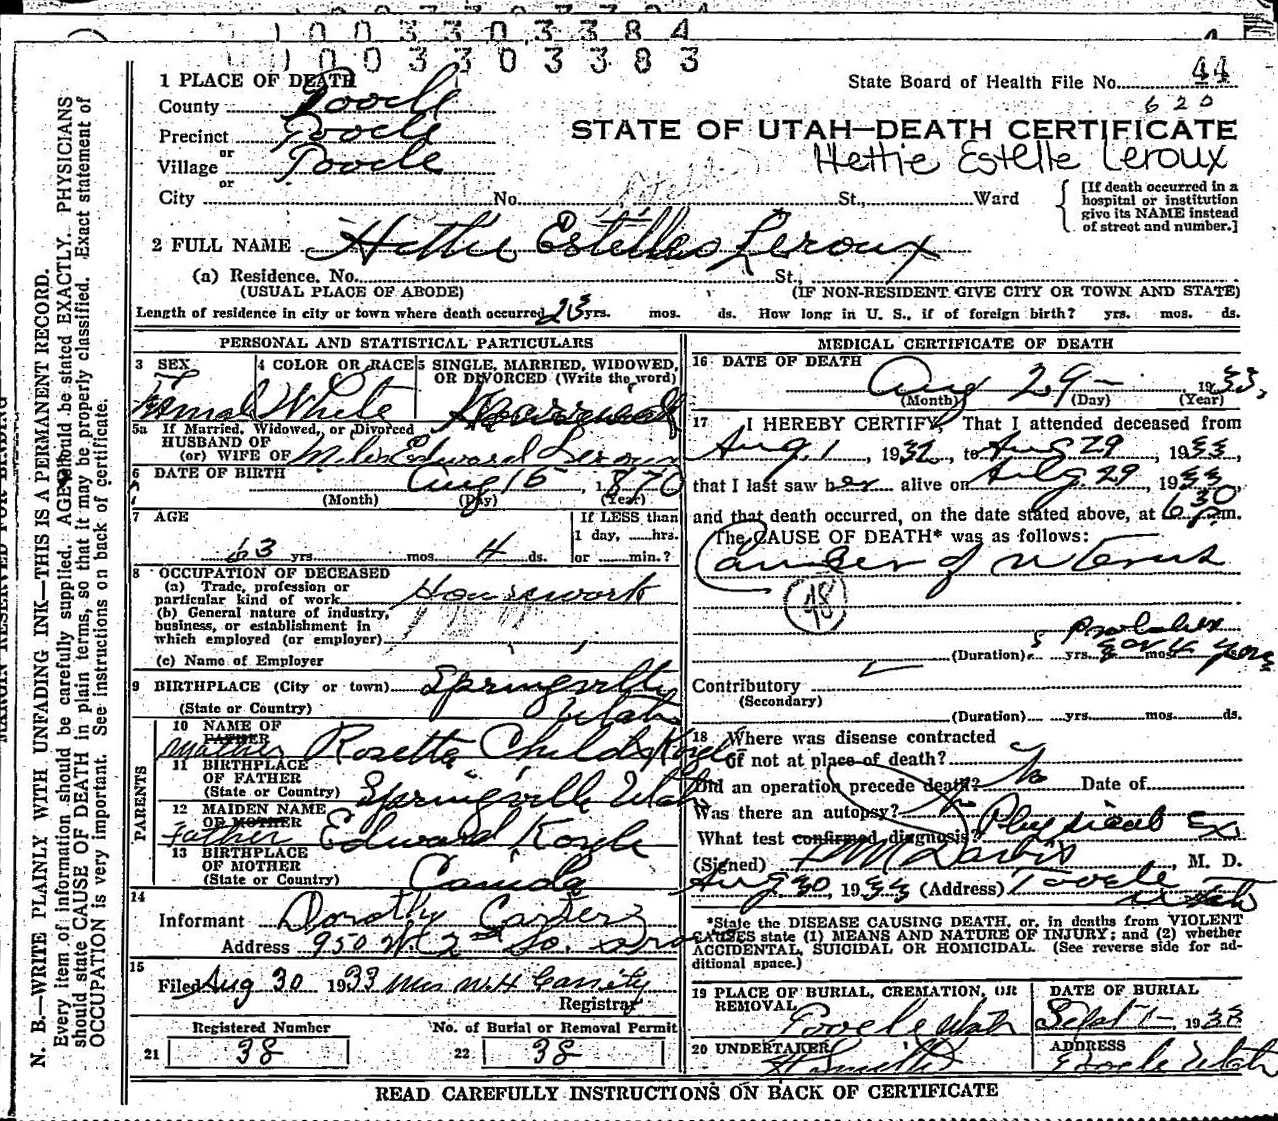 1003303384
1003303383
1 PLACE OF DEATH
State Board of Health File No. 44
County Tooele
620
Precinct Tooele
STATE OF UTAH—DEATH CERTIFICATE
or
Village Tooele
Hettie Estelle Leroux
or
City No. St., Ward
[If death occurred in a
hospital or institution
give its NAME instead
of street and number.]
2 FULL NAME Hettie Estelle Leroux
(a) Residence. No. St.,
(USUAL PLACE OF ABODE) (IF NON-RESIDENT GIVE CITY OR TOWN AND STATE)
Length of residence in city or town where death occurred 23 yrs. mos. ds. How long in U. S., if of foreign birth? yrs. mos. ds.
PERSONAL AND STATISTICAL PARTICULARS
3 SEX
Femal
4 COLOR OR RACE
White
5 SINGLE, MARRIED, WIDOWED,
OR DIVORCED (Write the word)
5a If Married, Widowed, or Divorced
HUSBAND OF
(or) WIFE OF Edward Leroux
6 DATE OF BIRTH Aug 15, 1870
(Month) (Day) (Year)
7 AGE
63 yrs. mos. 4 ds.
If LESS than
1 day, hrs.
or min.?
8 OCCUPATION OF DECEASED
(a) Trade, profession or
particular kind of work Housework
(b) General nature of industry,
business, or establishment in
which employed (or employer)
(c) Name of Employer
9 BIRTHPLACE (City or town) Springville
(State or Country) Utah
PARENTS
10 NAME OF
FATHER
Mother Rosetta Childs
11 BIRTHPLACE
OF FATHER
(State or Country) Springville Utah
12 MAIDEN NAME
OF MOTHER
Father Edward
13 BIRTHPLACE
OF MOTHER
(State or Country) Canida
14
Informant Dorothy
Address 950 W. 2nd So.
15
Filed Aug 30 1933 Mrs
Registrar
Registered Number
21 38
No. of Burial or Removal Permit
22 38
MEDICAL CERTIFICATE OF DEATH
16 DATE OF DEATH
Aug 29 – 1933,
(Month) (Day) (Year)
17 I HEREBY CERTIFY, That I attended deceased from
Aug. 1, 1932, to Aug 29, 1933,
that I last saw her alive on Aug. 29, 1933
and that death occurred, on the date stated above, at 6 30 p.m.
The CAUSE OF DEATH* was as follows:
Cancer of uterus
48
(Duration) yrs. mos.
Contributory
(Secondary)
(Duration) yrs. mos. ds.
18 Where was disease contracted
if not at place of death?
Did an operation precede death? No Date of
Was there an autopsy?
What test confirmed diagnosis? Physical Ex.
(Signed) M. D.
Aug 30, 1933 (Address) Tooele
Utah
*State the DISEASE CAUSING DEATH, or, in deaths from VIOLENT
CAUSES state (1) MEANS AND NATURE OF INJURY; and (2) whether
ACCIDENTAL, SUICIDAL OR HOMICIDAL. (See reverse side for ad-
ditional space.)
19 PLACE OF BURIAL, CREMATION, OR
REMOVAL
Tooele Utah
DATE OF BURIAL
Sept 1 – 1933
20 UNDERTAKER
ADDRESS
Tooele Utah
READ CAREFULLY INSTRUCTIONS ON BACK OF CERTIFICATE
MARGIN RESERVED FOR BINDING
N. B.—WRITE PLAINLY WITH UNFADING INK—THIS IS A PERMANENT RECORD.
Every item of information should be carefully supplied. AGE should be stated EXACTLY. PHYSICIANS
should state CAUSE OF DEATH in plain terms, so that it may be properly classified. Exact statement of
OCCUPATION is very important. See instructions on back of certificate.